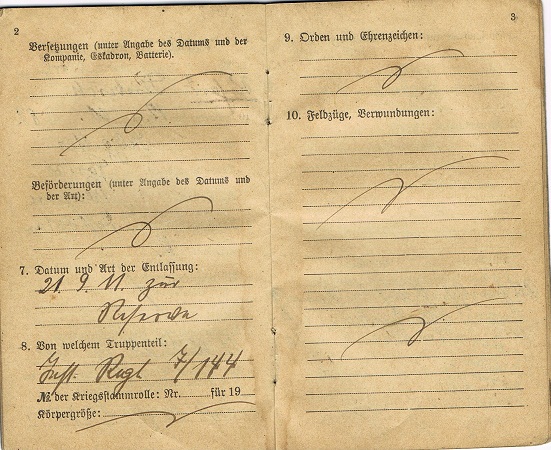 2
Versetzungen (unter Angabe des Datums und der
Kompanie, Eskadron, Batterie).
Beförderungen (unter Angabe des Datums und
der Art):
7. Datum und Art der Entlassung:
21. 9. 11. zur
Reserve
8. Von welchem Truppenteil:
Inft. Regt 7/144
№ der Kriegsstammrolle: Nr. für 19
Körpergröße:
3
9. Orden und Ehrenzeichen:
10. Feldzüge, Verwundungen: